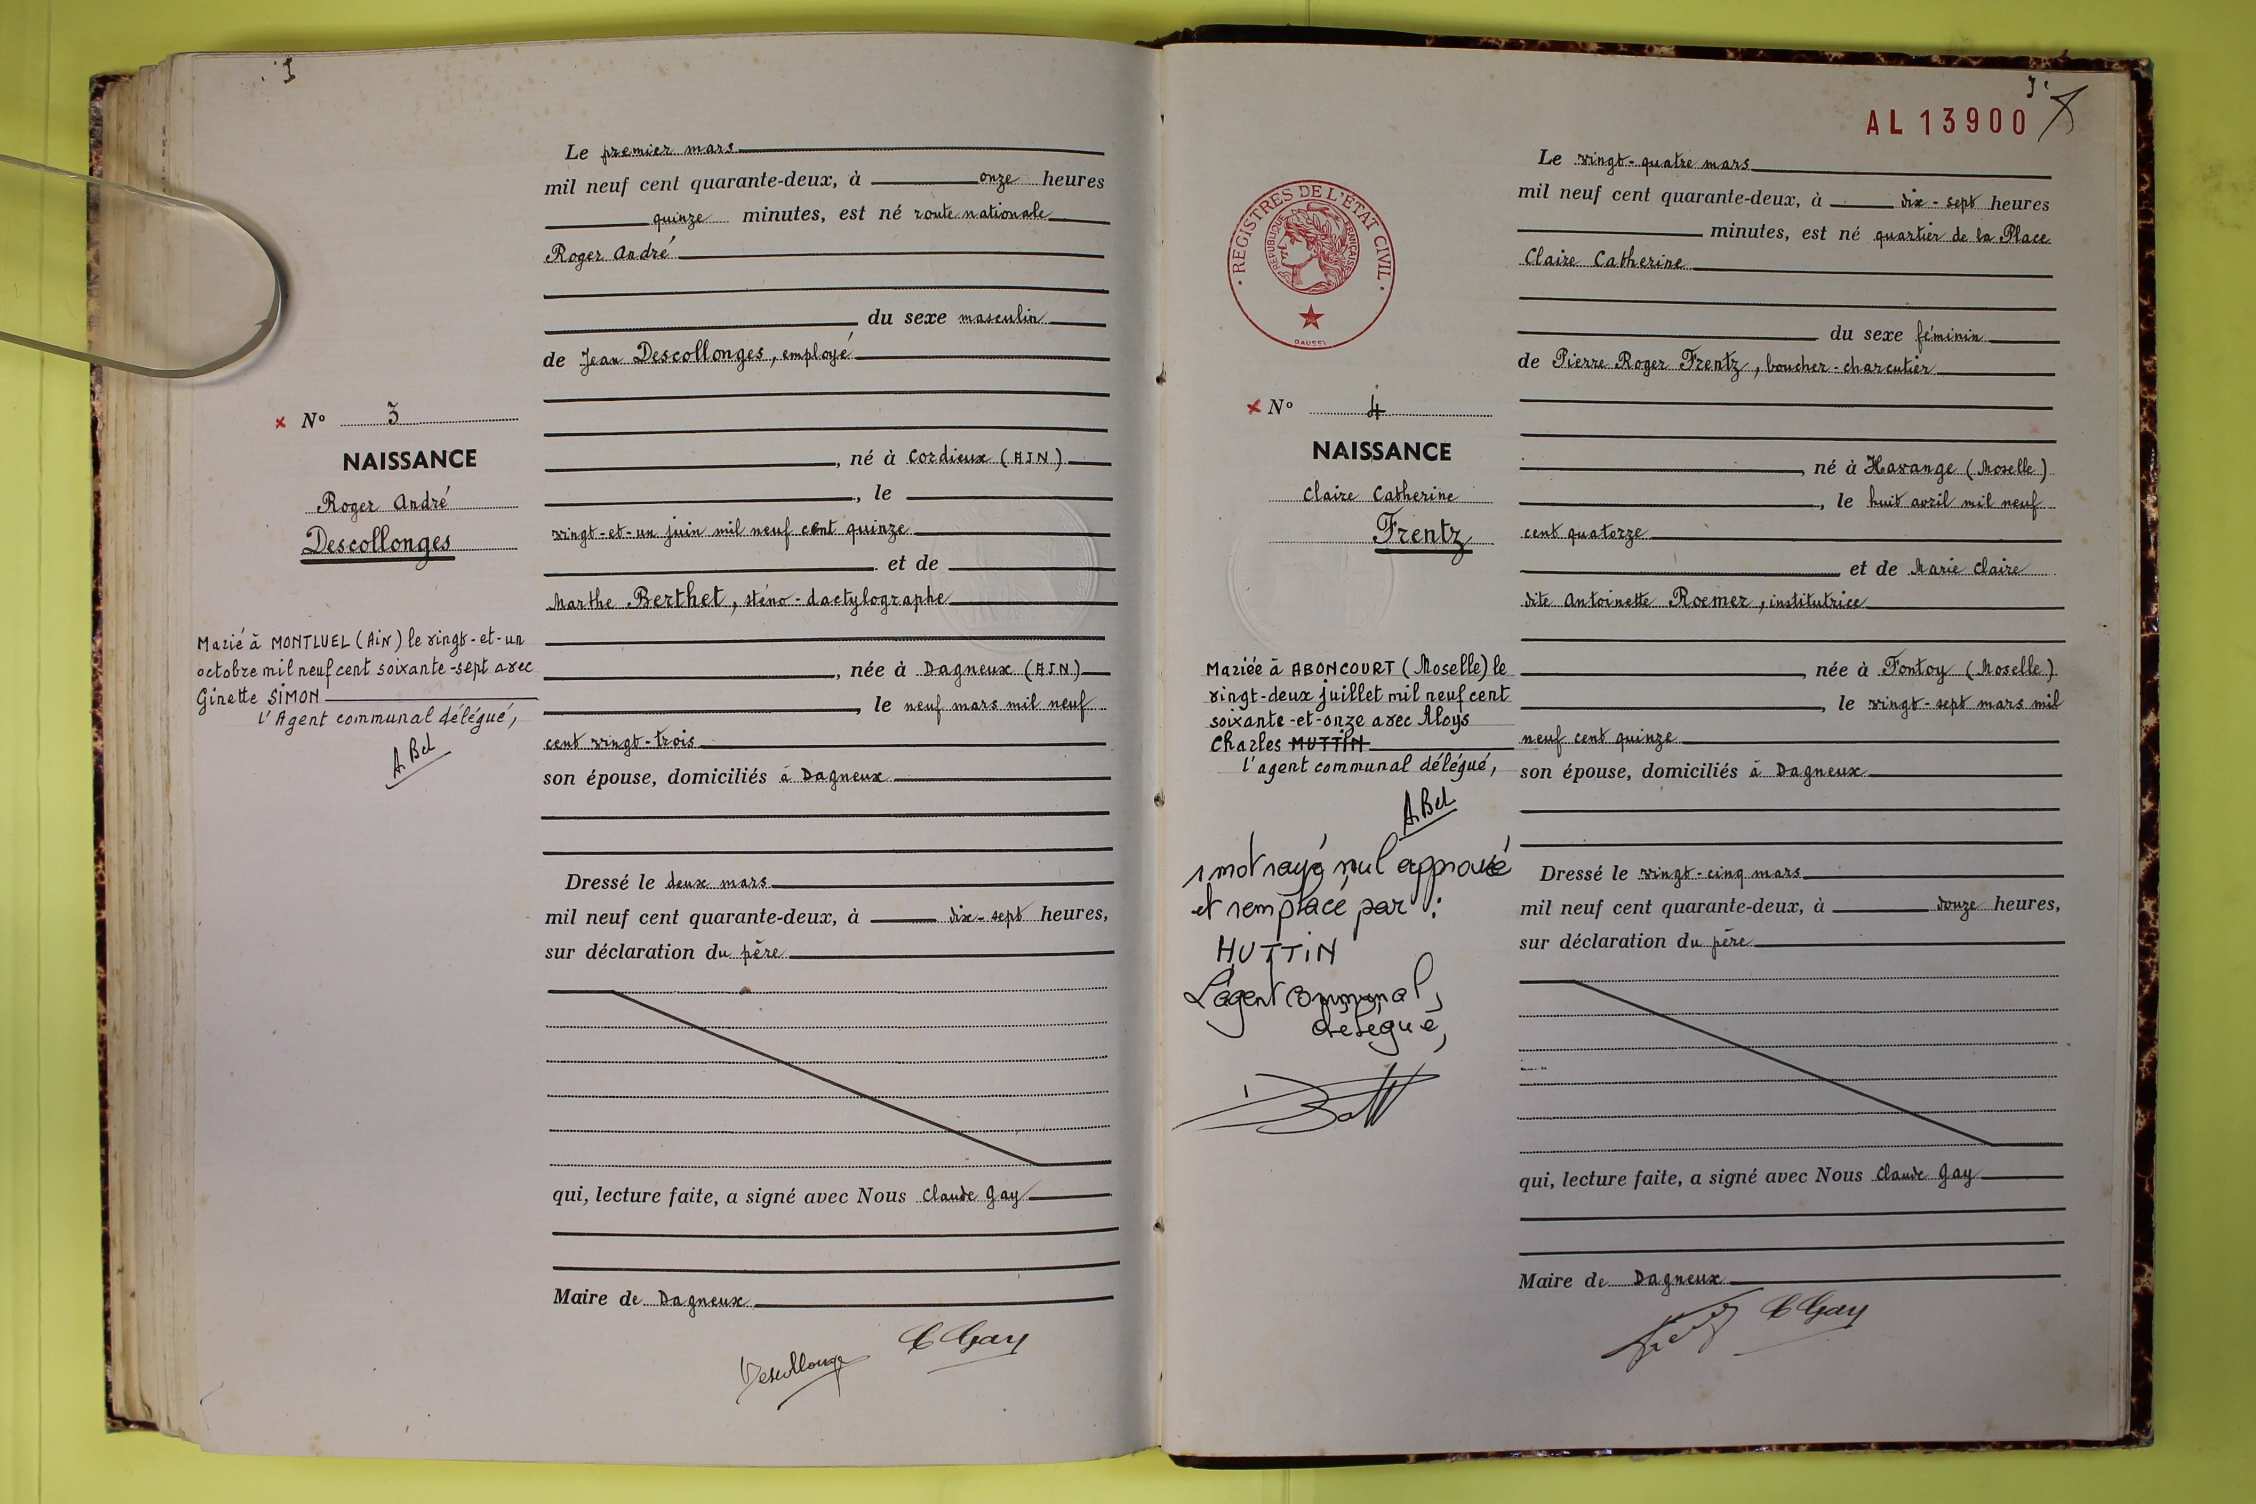 3
Le premier mars
mil neuf cent quarante-deux, à onze heures
quinze minutes, est né route nationale
Roger André
du sexe masculin
de Jean Descollonges, employé
né à Cordieux (AIN)
, le
vingt-et-un juin mil neuf cent quinze
et de
Marthe Berthet, sténo-dactylographe
, née à Dagneux (AIN)
, le neuf mars mil neuf
cent vingt-trois
son épouse, domiciliés à Dagneux
Dressé le deux mars
mil neuf cent quarante-deux, à dix-sept heures,
sur déclaration du père
qui, lecture faite, a signé avec Nous Claude Gay
Maire de Dagneux
Descollonge
C Gay
× No 3
NAISSANCE
Roger André
Descollonges
Marié à MONTLUEL (AIN) le vingt-et-un
octobre mil neuf cent soixante-sept avec
Ginette SIMON
l'Agent communal délégué,
A. Bel
AL 13900
REGISTRES DE L'ÉTAT CIVIL
RÉPUBLIQUE FRANÇAISE
DAUSSY
× No 4
NAISSANCE
Claire Catherine
Frentz
Mariée à ABONCOURT (Moselle) le
vingt-deux juillet mil neuf cent
soixante-et-onze avec Aloys
Charles MUTTIN
l'agent communal délégué,
A. Bel
1 mot rayé nul approuvé
et remplacé par :
HUTTIN
L'agent communal,
délégué,
Le vingt-quatre mars
mil neuf cent quarante-deux, à dix-sept heures
minutes, est né quartier de la Place
Claire Catherine
du sexe féminin
de Pierre Roger Frentz, boucher-charcutier
, né à Havange (Moselle)
, le huit avril mil neuf
cent quatorze
et de Marie Claire
dite Antoinette Roemer, institutrice
, née à Fontoy (Moselle)
, le vingt-sept mars mil
neuf cent quinze
son épouse, domiciliés à Dagneux
Dressé le vingt-cinq mars
mil neuf cent quarante-deux, à douze heures,
sur déclaration du père
qui, lecture faite, a signé avec Nous Claude Gay
Maire de Dagneux
C Gay